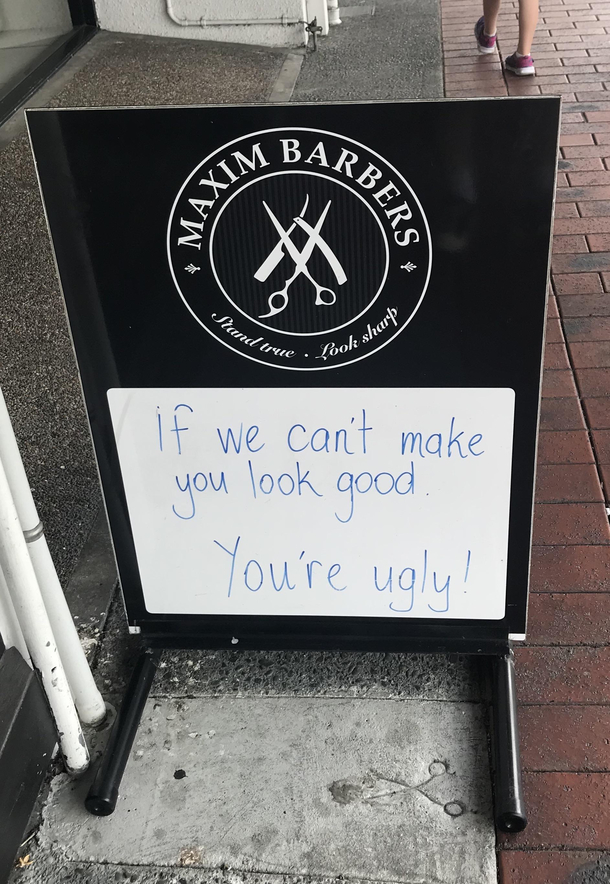 MAXIM BARBERS
Stand true · Look sharp
If we can't make
you look good.
You're ugly!